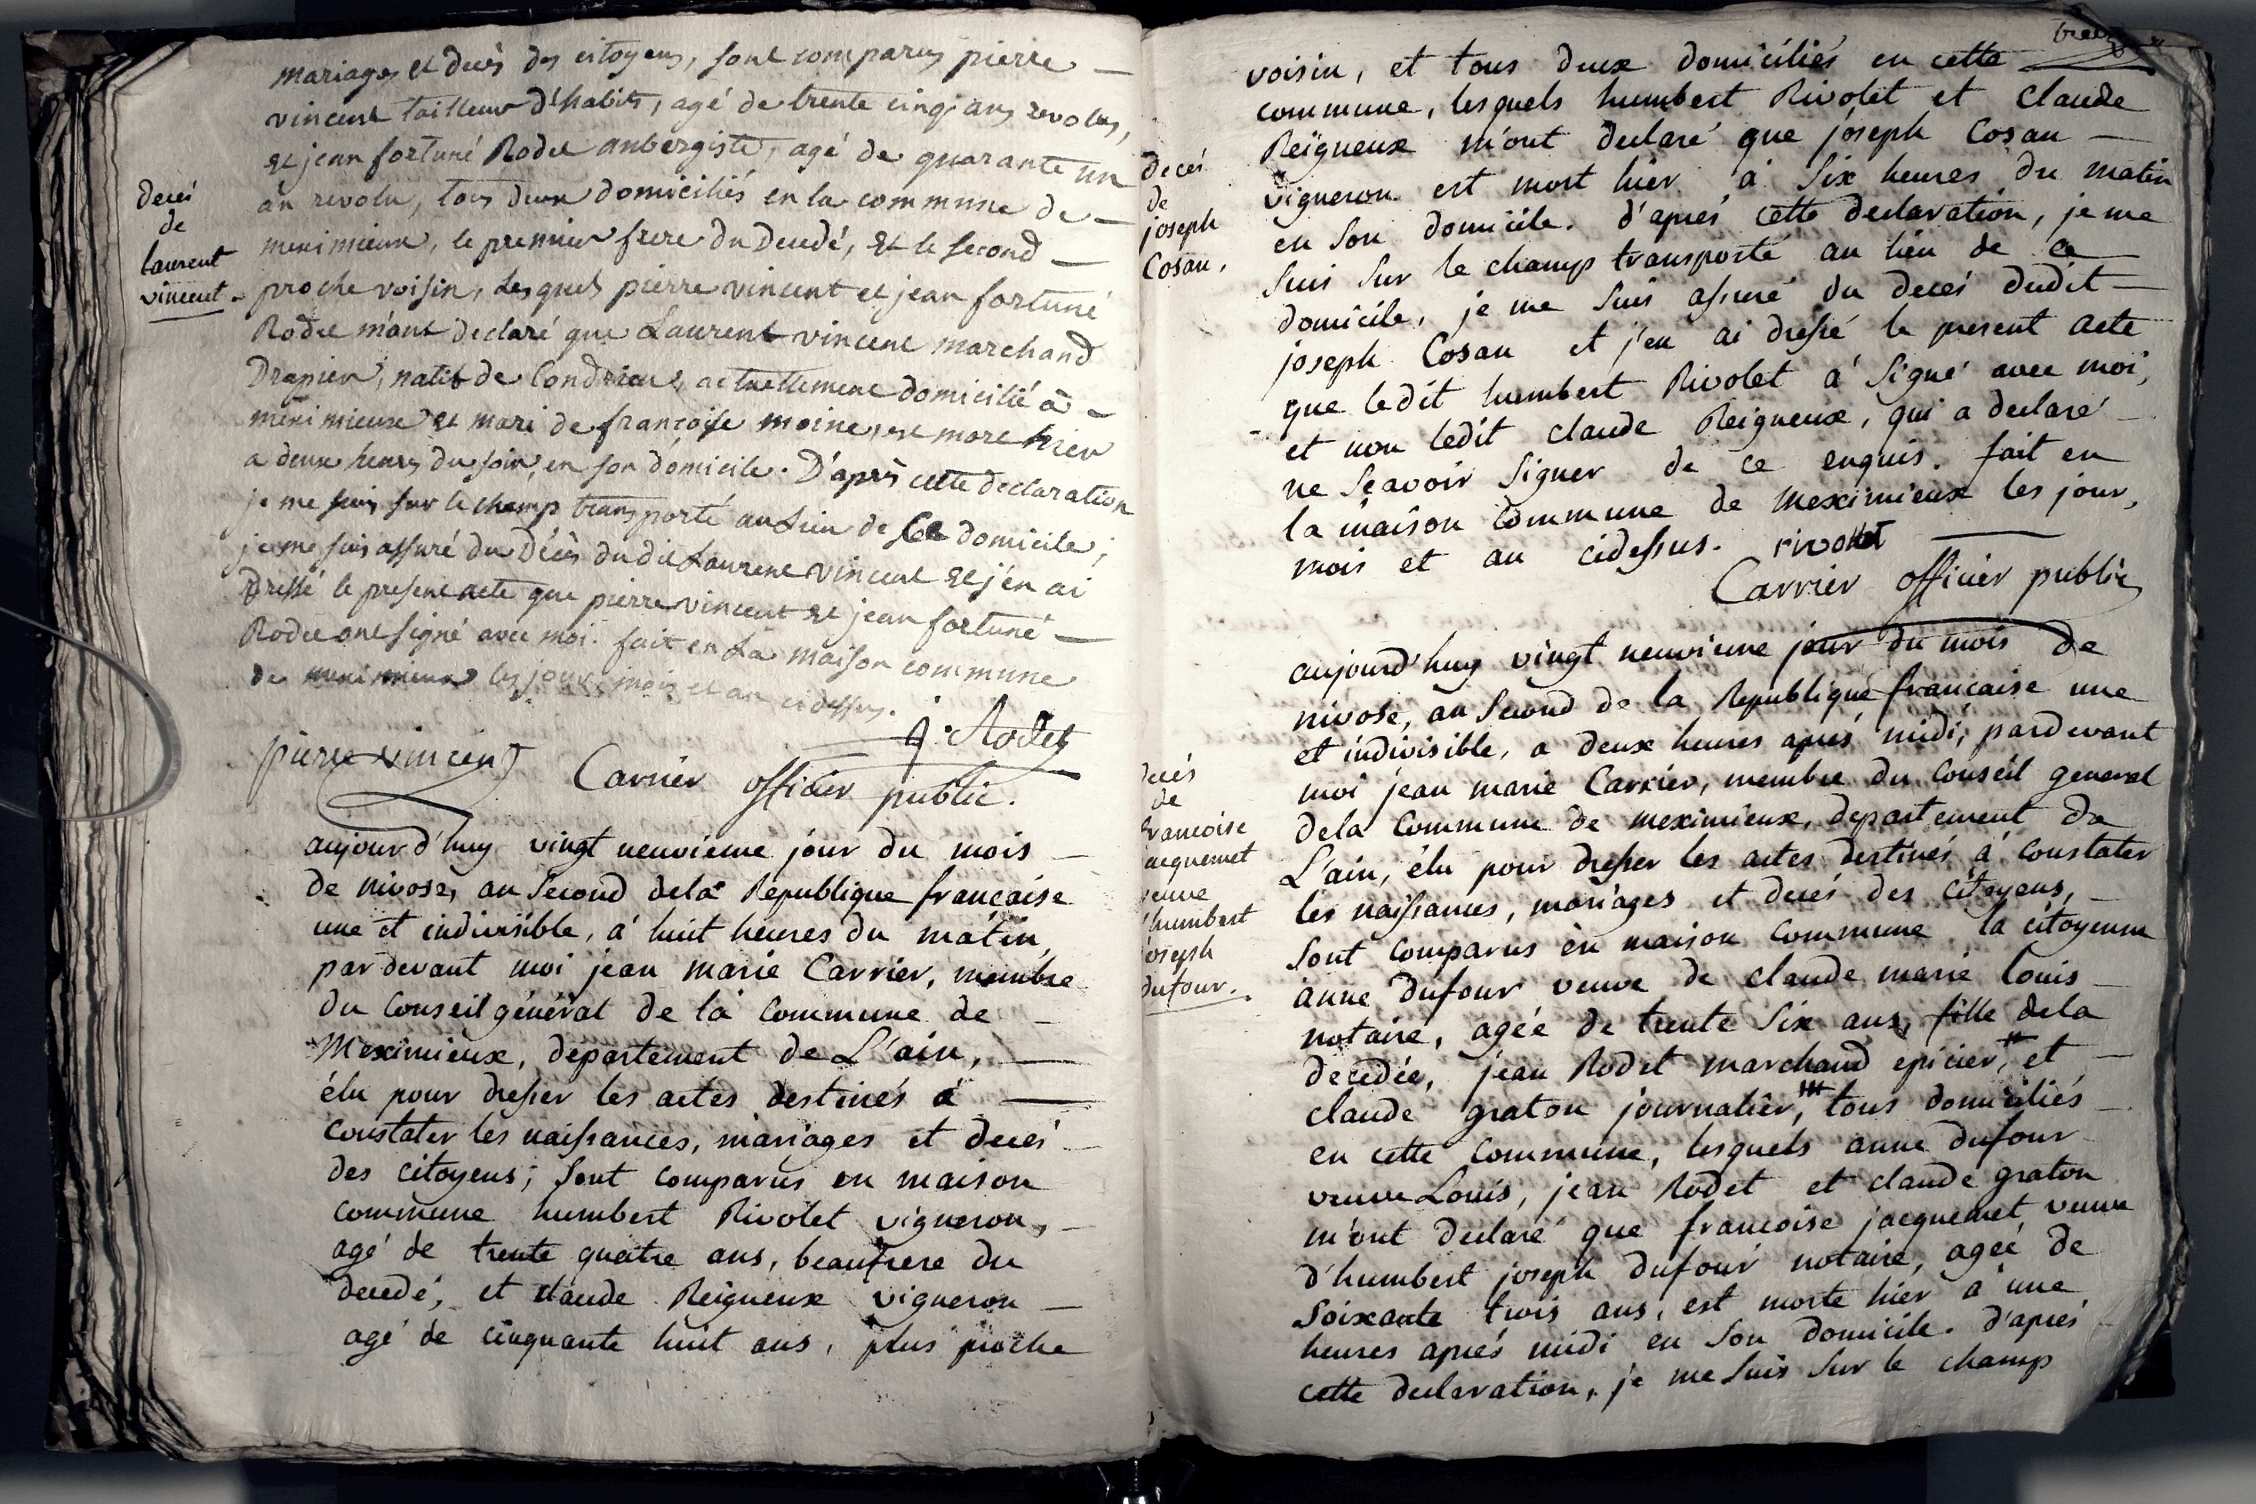 mariages et decès des citoyens, sont comparus pierre
vincent tailleur d'habits, agé de trente cinq ans revolus,
et jean fortuné Rodet aubergiste, agé de quarante un
an revolu, tous deux domiciliés en la commune de
meximieux, le premier frere du decedé, et le second
proche voisin, lesquels pierre vincent et jean fortuné
Rodet m'ont declaré que Laurent vincent marchand
Drapier, natif de Condrieu, actuellement domicilié à
meximieux et mari de françoise moine, est mort hier
a deux heures du soir, en son domicile. D'après cette declaration
je me suis sur le champ transporté au Lieu de ce domicile,
je me suis assuré du Décès dudit Laurent vincent et j'en ai
Dressé le present acte que pierre vincent et jean fortuné
Rodet ont signé avec moi. fait en La maison commune
de meximieux les jour, mois et an cidessus.
decés
de
laurent
vincent.
j. Rodet
pierre vincent
Carrier officier public.
aujourd'huy vingt neuvieme jour du mois
de nivose, an second dela Republique française
une et indivisible, á huit heures du matin,
pardevant moi jean marie Carrier, membre
du Conseil général de la commune de
Meximieux, departement de L'ain,
élu pour dresser les actes destinés á
constater les naissances, mariages et decés
des citoyens; sont comparus en maison
commune humbert Rivolet vigneron,
agé de trente quatre ans, beaufrere du
decedé, et claude Reigneux vigneron
agé de cinquante huit ans, plus proche
voisin, et tous deux domiciliés en cette
commune, lesquels humbert Rivolet et Claude
Reigneux m'ont declaré que joseph Cosan
vigneron est mort hier á six heures du matin
en son domicile. d'aprés cette declaration, je me
suis sur le champ transporté au lieu de ce
domicile, je me suis assuré du decés dudit
joseph Cosan et j'en ai dressé le present acte
que ledit humbert Rivolet á signé avec moi,
et non ledit claude Reigneux, qui a declaré
ne sçavoir signer de ce enquis. fait en
la maison commune de meximieux les jour,
mois et an cidessus. rivolet
Carrier officier public
decés
de
joseph
Cosan,
aujourd'huy vingt neuvieme jour du mois de
nivose, an second de la Republique française une
et indivisible, a deux heures aprés midi, pardevant
moi jean marie Carrier, membre du Conseil general
dela Commune de meximieux, departement de
L'ain, élu pour dresser les actes destinés á constater
les naissances, mariages et decés des citoyens,
sont comparus en maison commune la citoyenne
anne dufour veuve de claude marie louis
notaire, agée de trente six ans, fille dela
decedée, jean Rodet marchand epicier, et
claude graton journalier, tous domiciliés
en cette commune, lesquels anne dufour
veuve Louis, jean Rodet et claude graton
m'ont declaré que francoise jacquemet veuve
d'humbert joseph dufour notaire, ageé de
soixante trois ans, est morte hier á une
heures aprés midi en son domicile. d'aprés
cette declaration, je me suis sur le champ
decés
de
francoise
jacquemet
veuve
d'humbert
joseph
dufour.